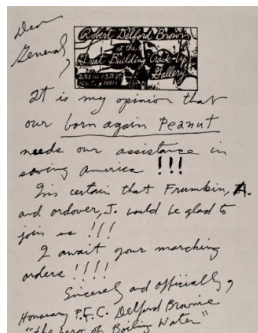 Dear
General,
Robert Delford Brown
at the
Great Building Crack-Up
Gallery
251 W 13th St.
It is my opinion that
our born again Peanut
needs our assistance in
saving america !!!
I'm certain that Frumkin, A.
and ordover, J. would be glad to
join us !!!
I await your marching
orders !!!!
Sincerely and officially,
Honorary P.F.C. Delford Brownie
"the hero of Boiling Water"